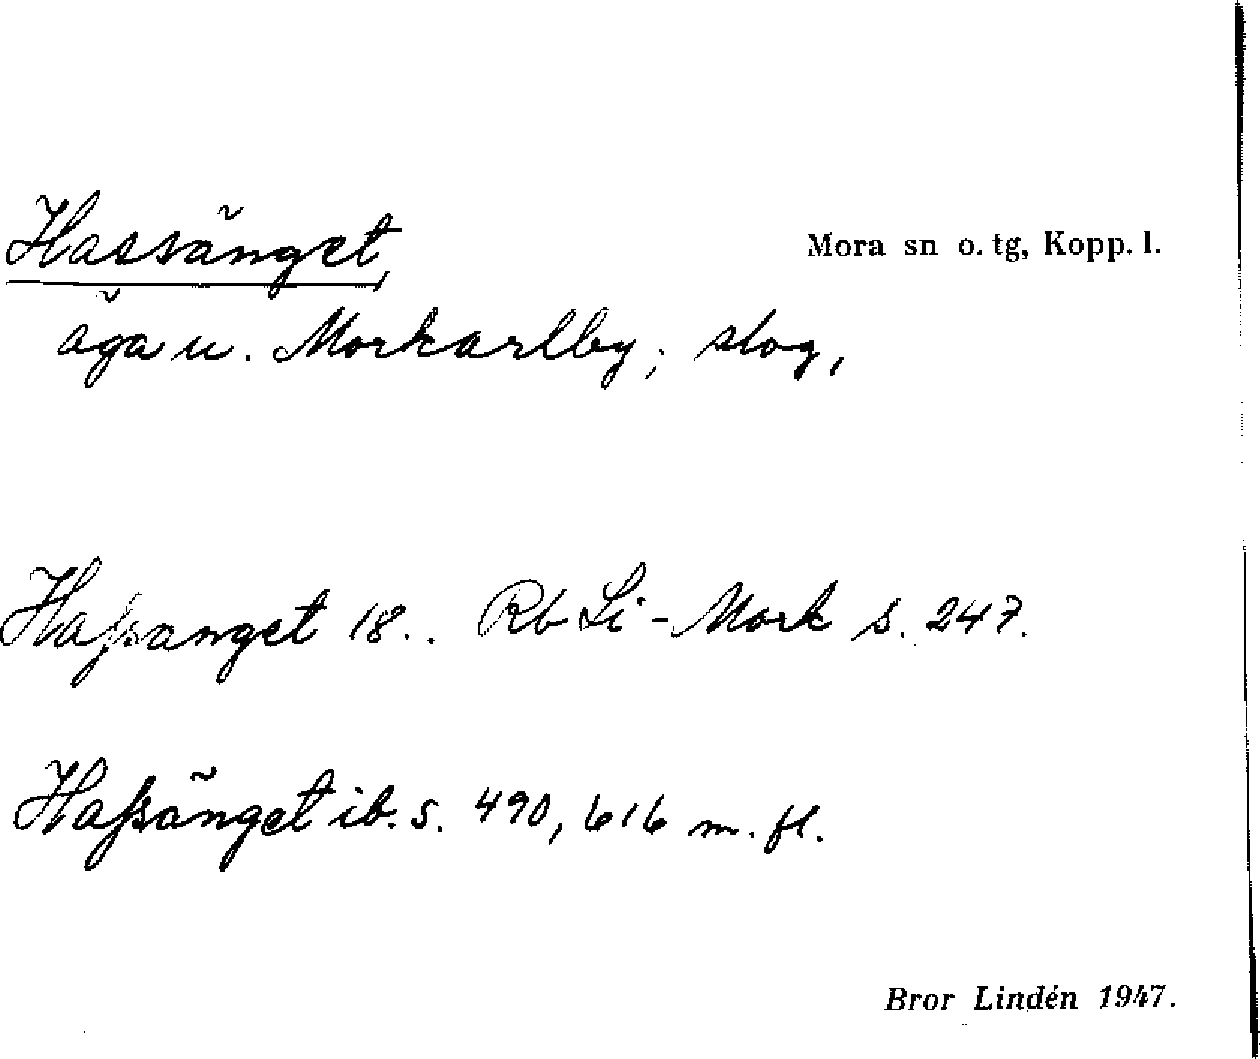 Hassänget, Mora sn o. tg, Kopp. l.
äga u. Morkarlby; slog,
Haſsanget 18.. Rb Li-Mork s. 247.
Haſsänget ib. s. 490, 616 m. fl.
Bror Lindén 1947.